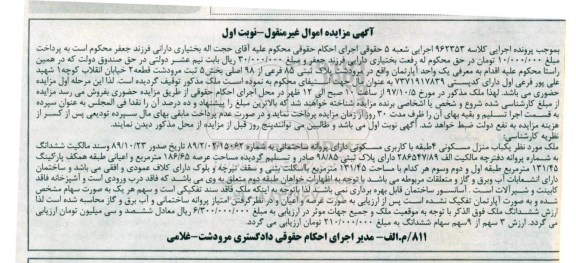 آگهی مزایده اموال غیرمنقول-نوبت اول
بموجب پرونده اجرایی کلاسه ۹۶۲۳۵۳ اجرایی شعبه ۵ حقوقی اجرای احکام حقوقی محکوم علیه آقای حجت اله بختیاری دارانی فرزند جعفر محکوم است به پرداخت
مبلغ ۱۰/۰۰۰/۰۰۰ تومان در حق محکوم له رفعت بختیاری دارابی فرزند جعفر و مبلغ ۳۰/۰۰۰/۰۰۰ ریال بابت نیم عشر دولتی در حق صندوق دولت که در همین
راستا محکوم علیه اقدام به معرفی یک واحد آپارتمان واقع در مرودشت پلاک ثبتی ۸۵ فرعی از ۹۸ اصلی بخش ۵ ثبت مرودشت قطعه ۲ خیابان انقلاب کوچه ۱ شهید
علی پور فرعی اول دارای کدپستی ۷۳۷۱۹۱۷۸۳۹ به عنوان مال جهت استیفای محکوم به نموده است ملک مذکور توقیف گردیده است لذا این مرحله اول مزایده
حضوری می باشد. لهذا ملک مذکور در مورخ ۹۷/۱۰/۵ از ساعت ۱۰ صبح الی ۱۲ ظهر در محل اجرای احکام حقوقی از طریق مزایده حضوری بفروش می رسد مزایده
از مبلغ کارشناسی شده شروع و شخص یا اشخاصی برنده مزایده شناخته خواهند شد که بالاترین مبلغ را پیشنهاد و ده درصد آن را نقدا فی المجلس به عنوان سپرده
به قسمت اجرا تسلیم و بقیه بهای آن را ظرف مدت ۳۰ روز از زمان مزایده پرداخت نماید و در صورت عدم پرداخت مابقی بهای مال سپرده تودیعی پس از کسر از
هزینه مزایده به نفع دولت ضبط خواهد شد. آگهی نوبت اول می باشد و طالبین می توانند پنج روز قبل از مزایده از محل مذکور دیدن نمایند.
نظریه کارشناسی:
ملک مورد نظر یکباب منزل مسکونی ۴ طبقه با کاربری مسکونی دارای پروانه ساختمانی به شماره ۸۹/۲۰۲۰۱۵۰۶۲ صادره از شهرداری در تاریخ ۸۹/۱۰/۲۳ وسند مالکیت ششدانگ
به شماره پروانه دفترچه مالکیت الف ۲۸۶۵۴۷/۸۹ دارای پلاک ثبتی ۹۸/۸۵ صادر و تسلیم گردیده مساحت عرصه ۱۸۶/۶۵ مترمربع و اعیانی طبقه همکف پارکینگ
۱۳۱/۴۵ مترمربع طبقه اول و دوم وسوم هر کدام با مساحت ۱۳۱/۴۵ مترمربع با اسکلت بتنی و سقف تیرچه و بلوک دارای کلاف عمودی و افقی می باشد و ساختمان
دارای انشعابات آب وبرق و گاز و متعلقات مربوطه می باشد با توجه به اظهارات خواهان طبقه دوم متعلق به وی می باشد که فاقد درب ورودی است و آشپزخانه فاقد
کابینت و شیرآلات است . آسانسور ساختمان قابل بهره برداری نمی باشد لذا باتوجه به اینکه ملک فاقد سند تفکیکی است و سهم هر یک به صورت سهام مشخص
شده و به صورت آپارتمان تفکیک نشده است پس از ارزیابی به صورت عرصه و اعیان و در نظر گرفتن امتیاز پروانه ساختمانی و آب برق و گاز محاسبه شده است لذا
ارزش ششدانگ ملک فوق الذکر با توجه به موقعیت ملک و جمیع جهات موثر در ارزیابی به مبلغ ۶/۳۰۰/۰۰۰/۰۰۰ ریال معادل ششصد و سی میلیون تومان ارزیابی
می گردد. ارزش ۳ سهم از ۹ سهم سهام ششدانگ به مبلغ ۲۱۰/۰۰۰/۰۰۰ تومان ارزیابی می گردد.
۸۱۱/م.الف- مدیر اجرای احکام حقوقی دادگستری مرودشت-غلامی